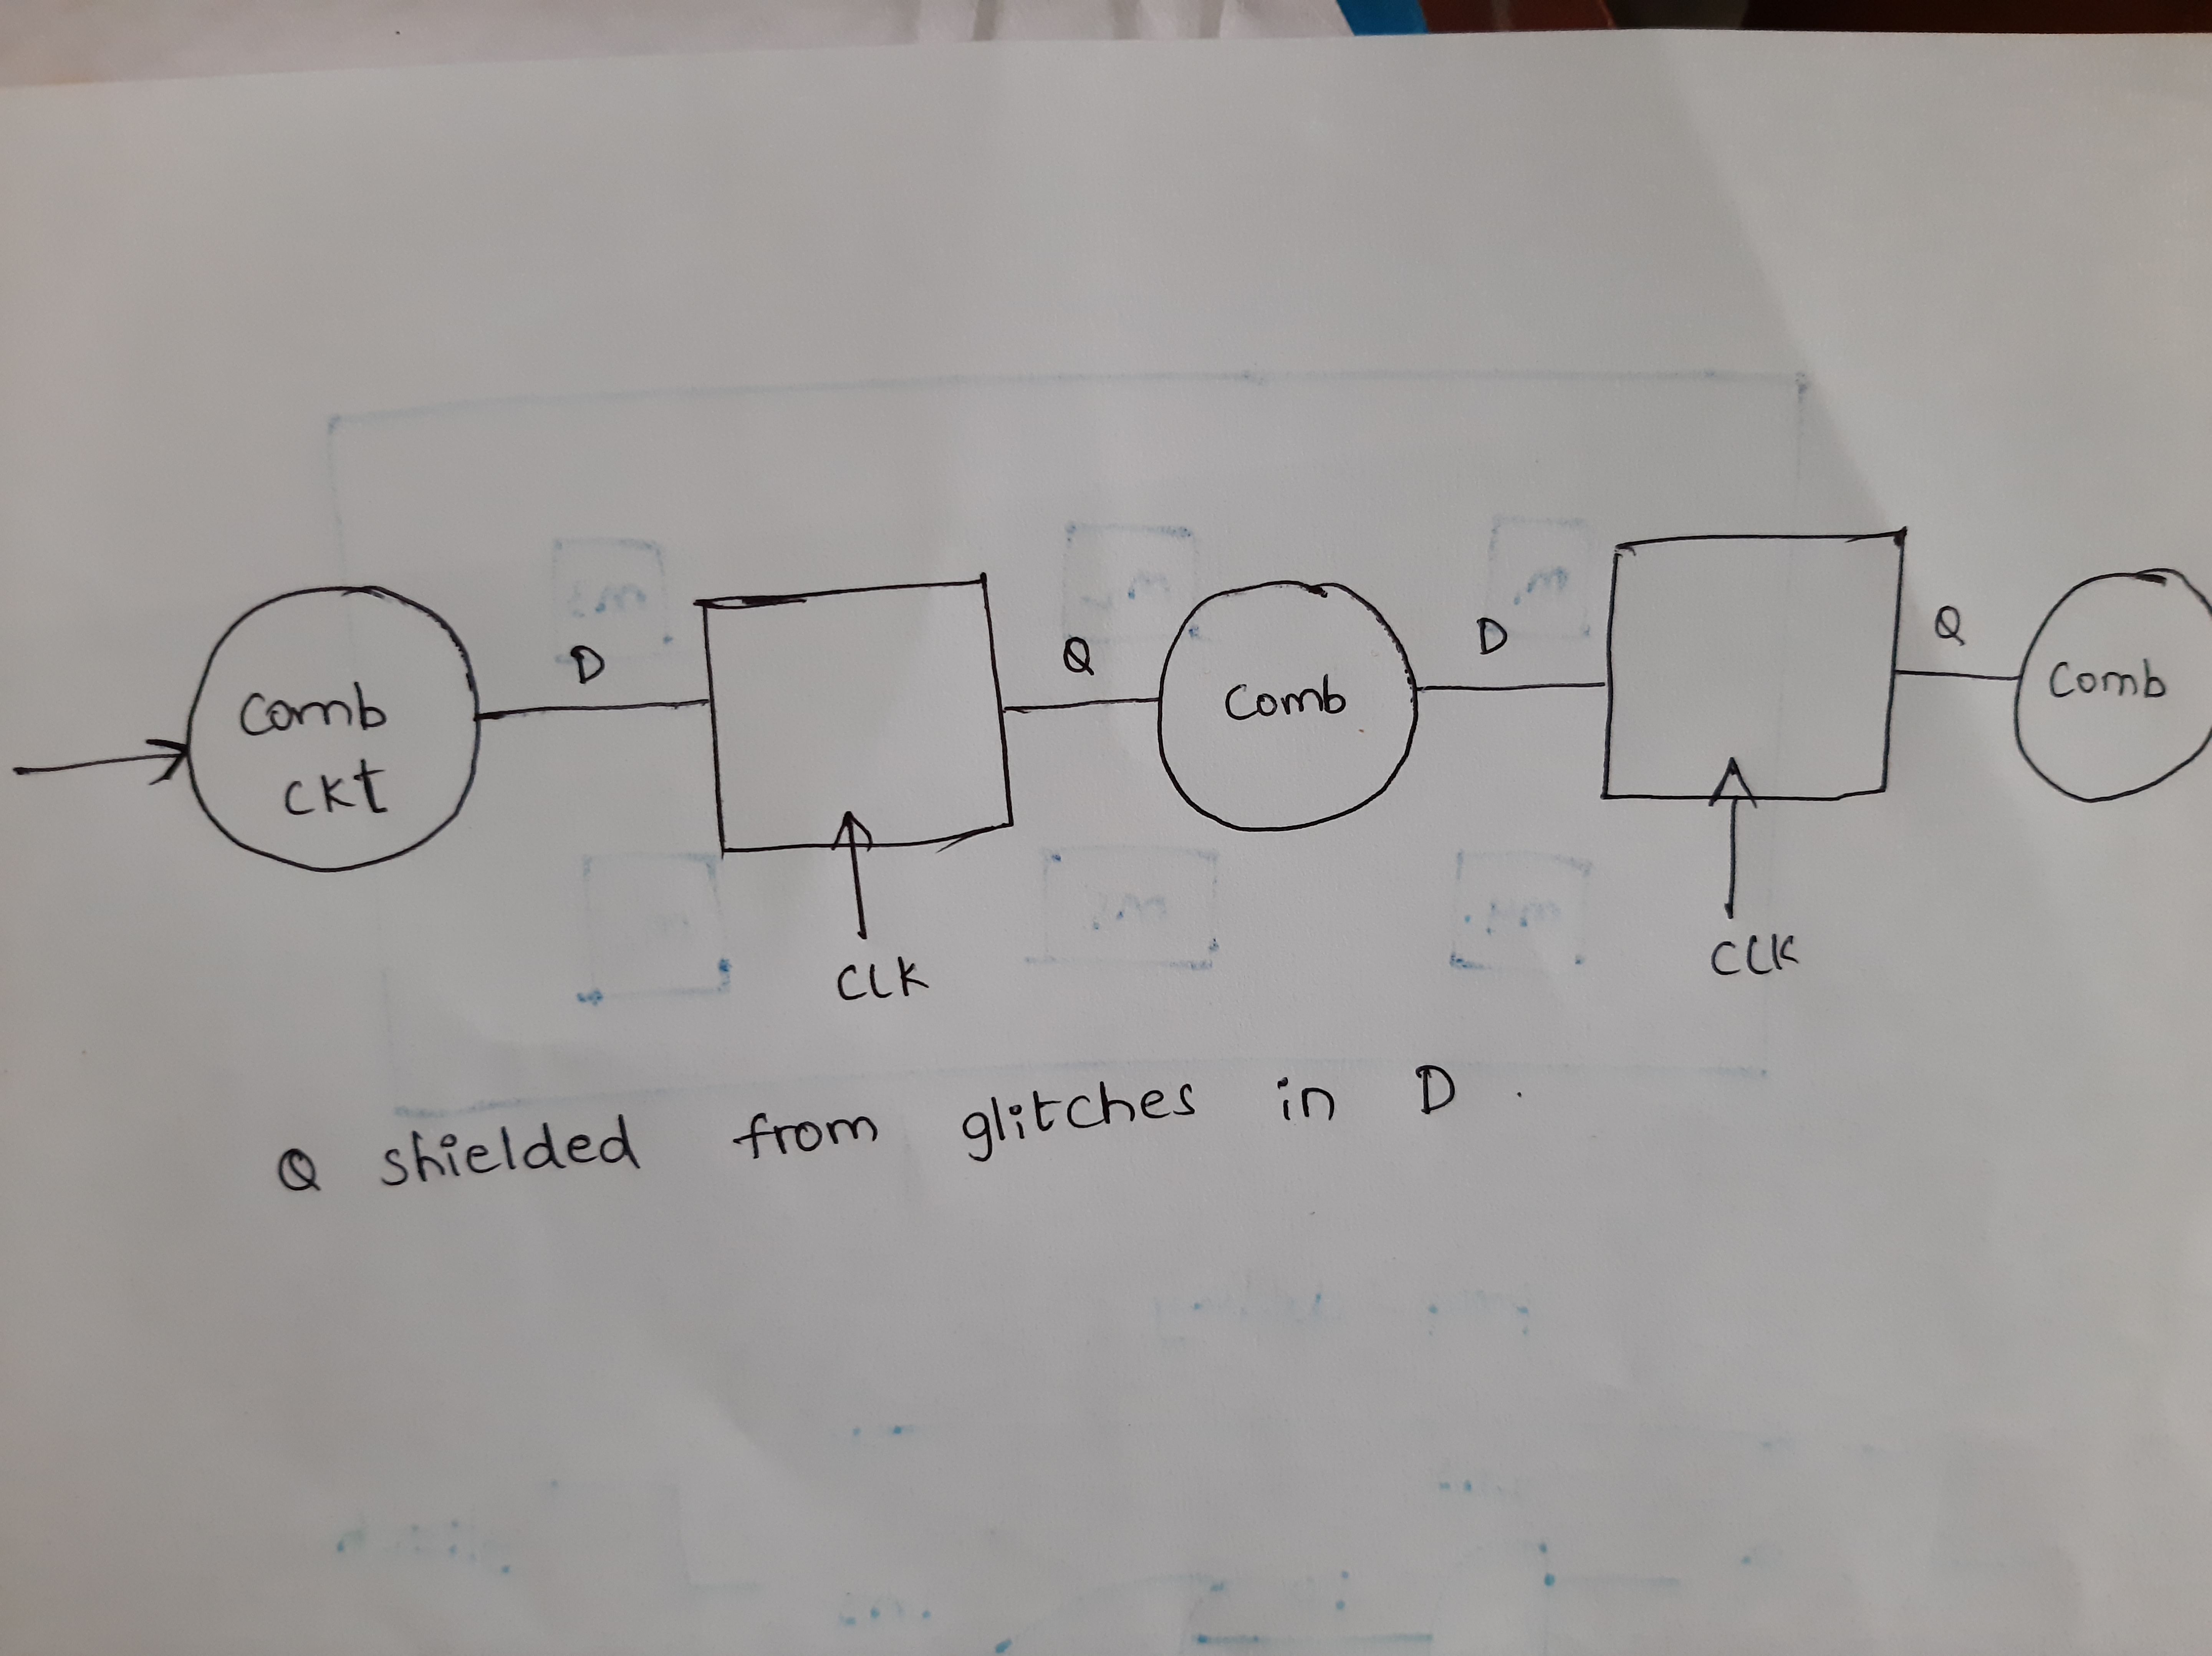 Comb
ckt
D
CLK
Q
Comb
D
CLK
Q
Comb
Q shielded from glitches in D.